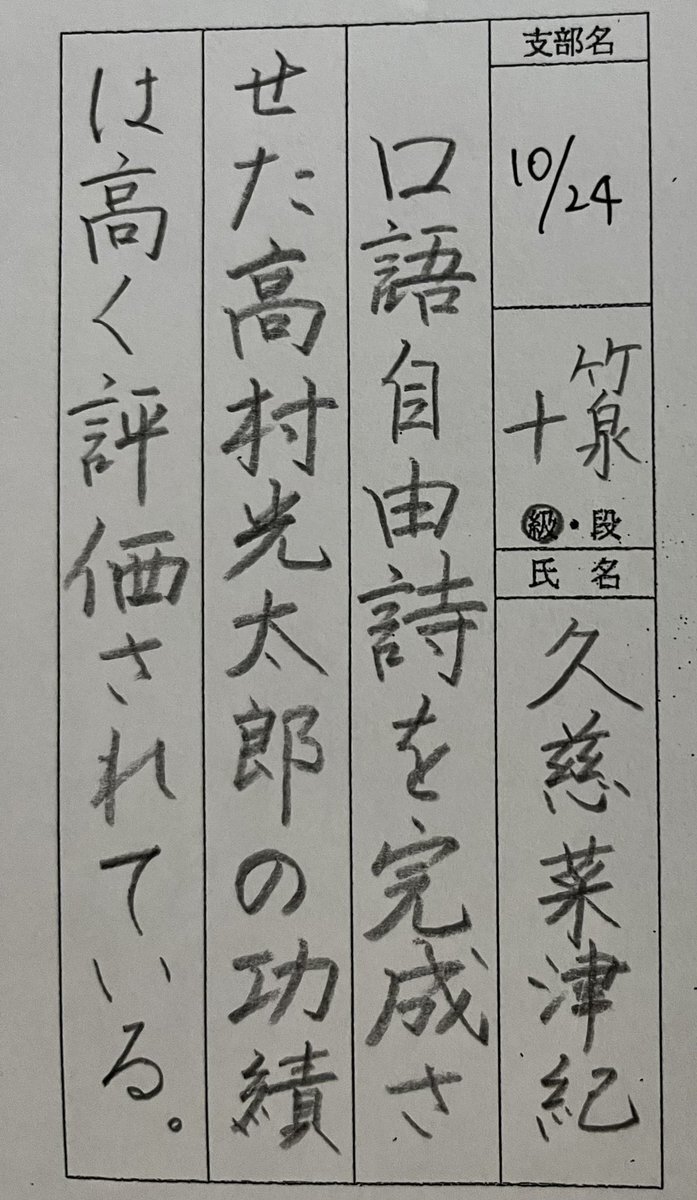 支部名
10/24
竹泉
十
級・段
氏名
久慈菜津紀
口語自由詩を完成さ
せた高村光太郎の功績
は高く評価されている。